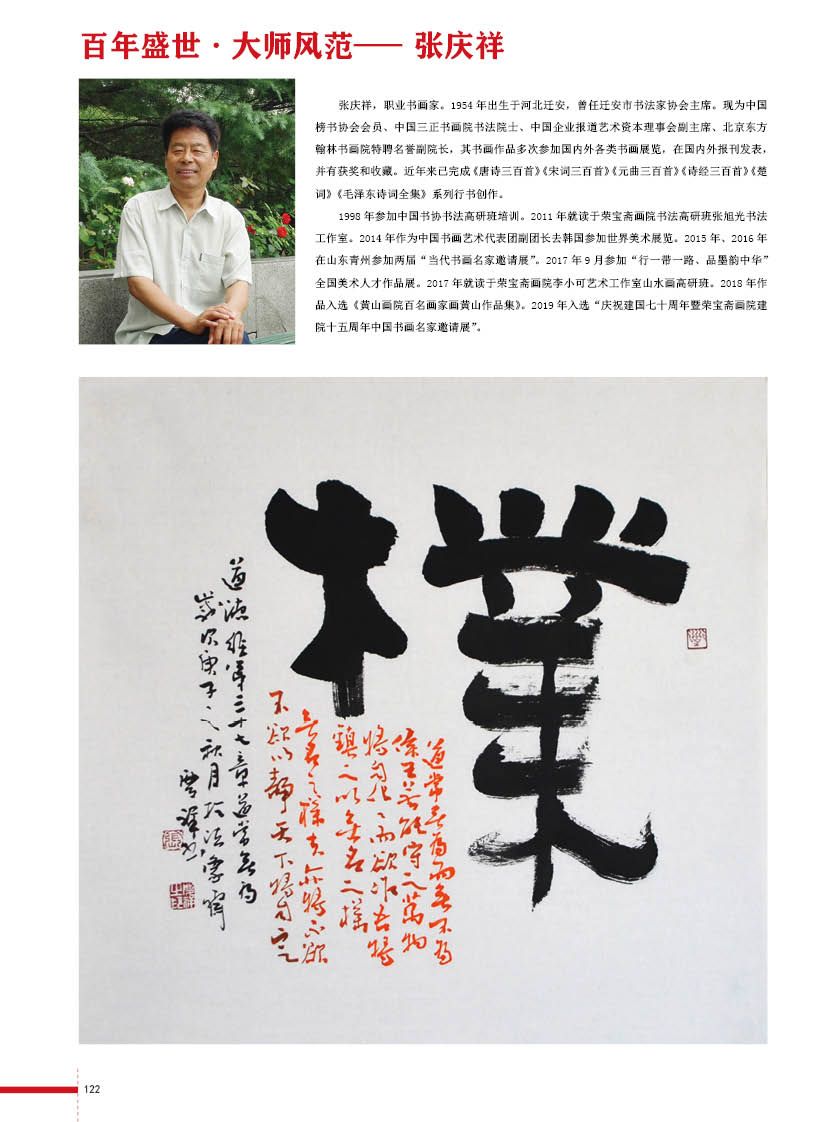 百年盛世·大师风范—— 张庆祥
张庆祥，职业书画家。1954 年出生于河北迁安，曾任迁安市书法家协会主席。现为中国
榜书协会会员、中国三正书画院书法院士、中国企业报道艺术资本理事会副主席、北京东方
翰林书画院特聘名誉副院长，其书画作品多次参加国内外各类书画展览，在国内外报刊发表，
并有获奖和收藏。近年来已完成《唐诗三百首》《宋词三百首》《元曲三百首》《诗经三百首》《楚
词》《毛泽东诗词全集》系列行书创作。
1998 年参加中国书协书法高研班培训。2011 年就读于荣宝斋画院书法高研班张旭光书法
工作室。2014 年作为中国书画艺术代表团副团长去韩国参加世界美术展览。2015 年、2016 年
在山东青州参加两届“当代书画名家邀请展”。2017 年 9 月参加“行一带一路、品墨韵中华”
全国美术人才作品展。2017 年就读于荣宝斋画院李小可艺术工作室山水画高研班。2018 年作
品入选《黄山画院百名画家画黄山作品集》。2019 年入选“庆祝建国七十周年暨荣宝斋画院建
院十五周年中国书画名家邀请展”。
樸
道常无为而无不为
侯王若能守之萬物
将自化化而欲作吾将
镇之以无名之樸
无名之樸夫亦将不欲
不欲以静天下将自定
道德经第三十七章道常无为
歲次庚子之秋月
122